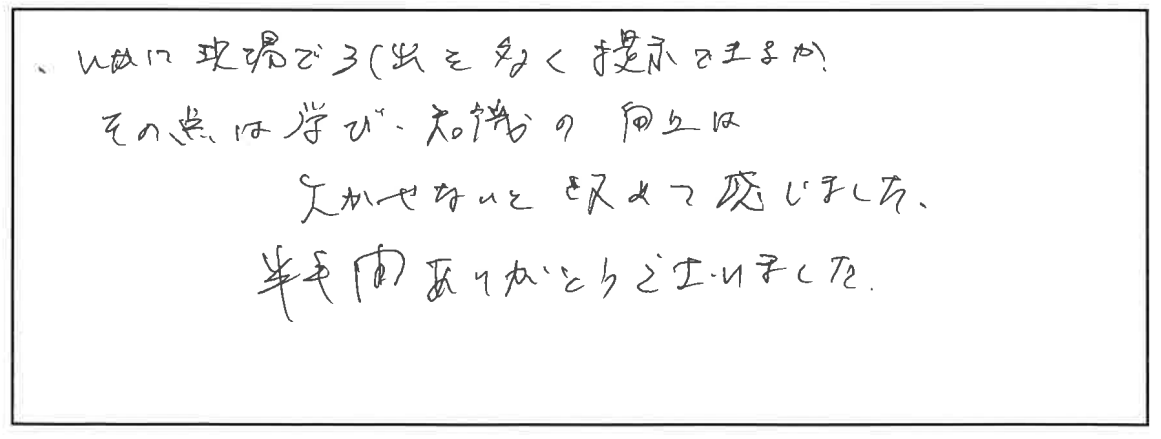 、いかに現場で引出を多く提示できるか
その点は学び・知識の向上は
欠かせないと改めて感じました。
半年間ありがとうございました。